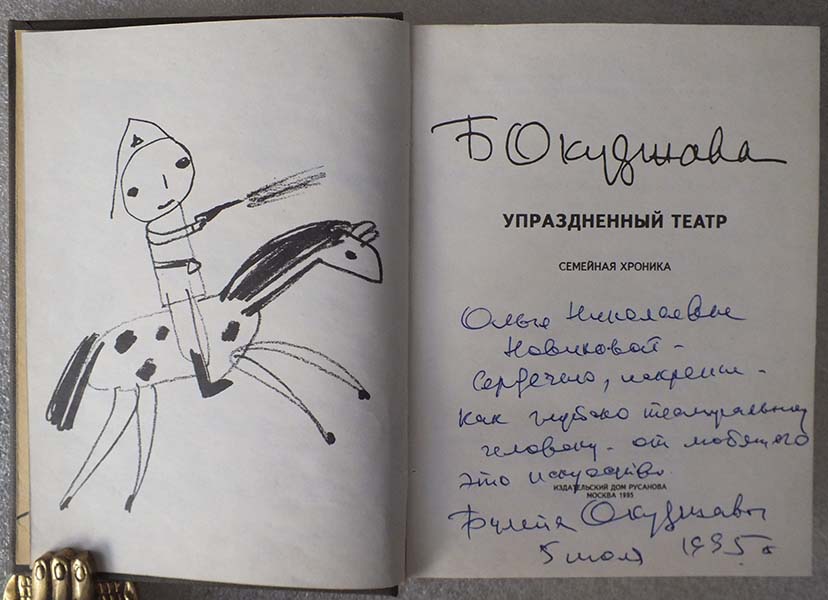 Б Окуджава
УПРАЗДНЕННЫЙ ТЕАТР
СЕМЕЙНАЯ ХРОНИКА
Ольге Николаевне
Новиковой -
Сердечно, искренне -
как глубоко театральному
человеку - от любящего
это искусство
ИЗДАТЕЛЬСКИЙ ДОМ РУСАНОВА
МОСКВА 1995
Булата Окуджавы
5 июля 1995 г